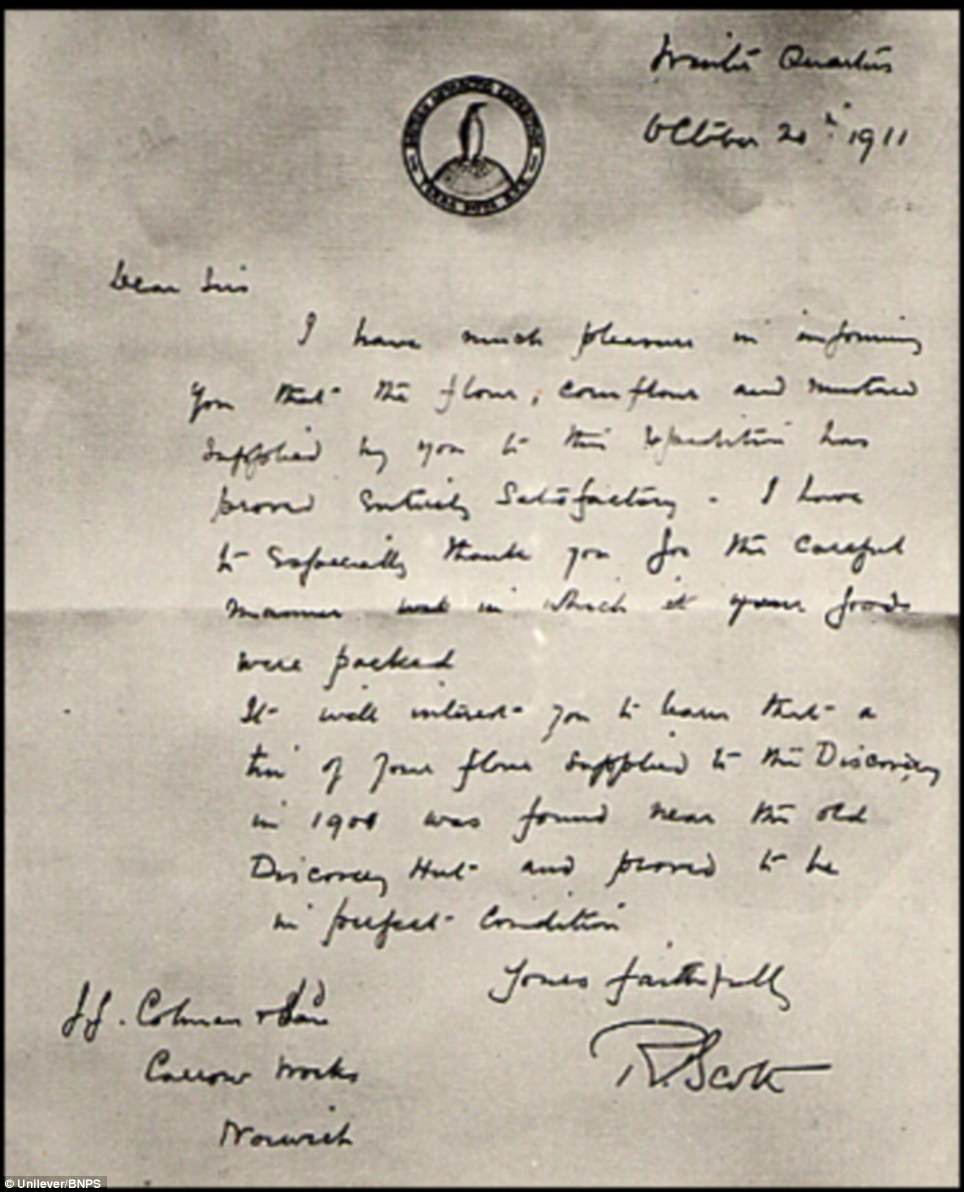 Winter Quarters
October 20th 1911
BRITISH ANTARCTIC EXPEDITION
TERRA NOVA R.Y.S.
Dear Sirs
I have much pleasure in informing
you that the flour, cornflour and mustard
supplied by you to this Expedition has
proved entirely satisfactory - I have
to especially thank you for the careful
manner in which your goods
were packed
It will interest you to learn that a
tin of your flour supplied to the Discovery
in 1901 was found near the old
Discovery Hut and proved to be
in perfect condition
Yours faithfully
R. Scott
J.J. Colman Ld
Carrow Works
Norwich
© Unilever/BNPS